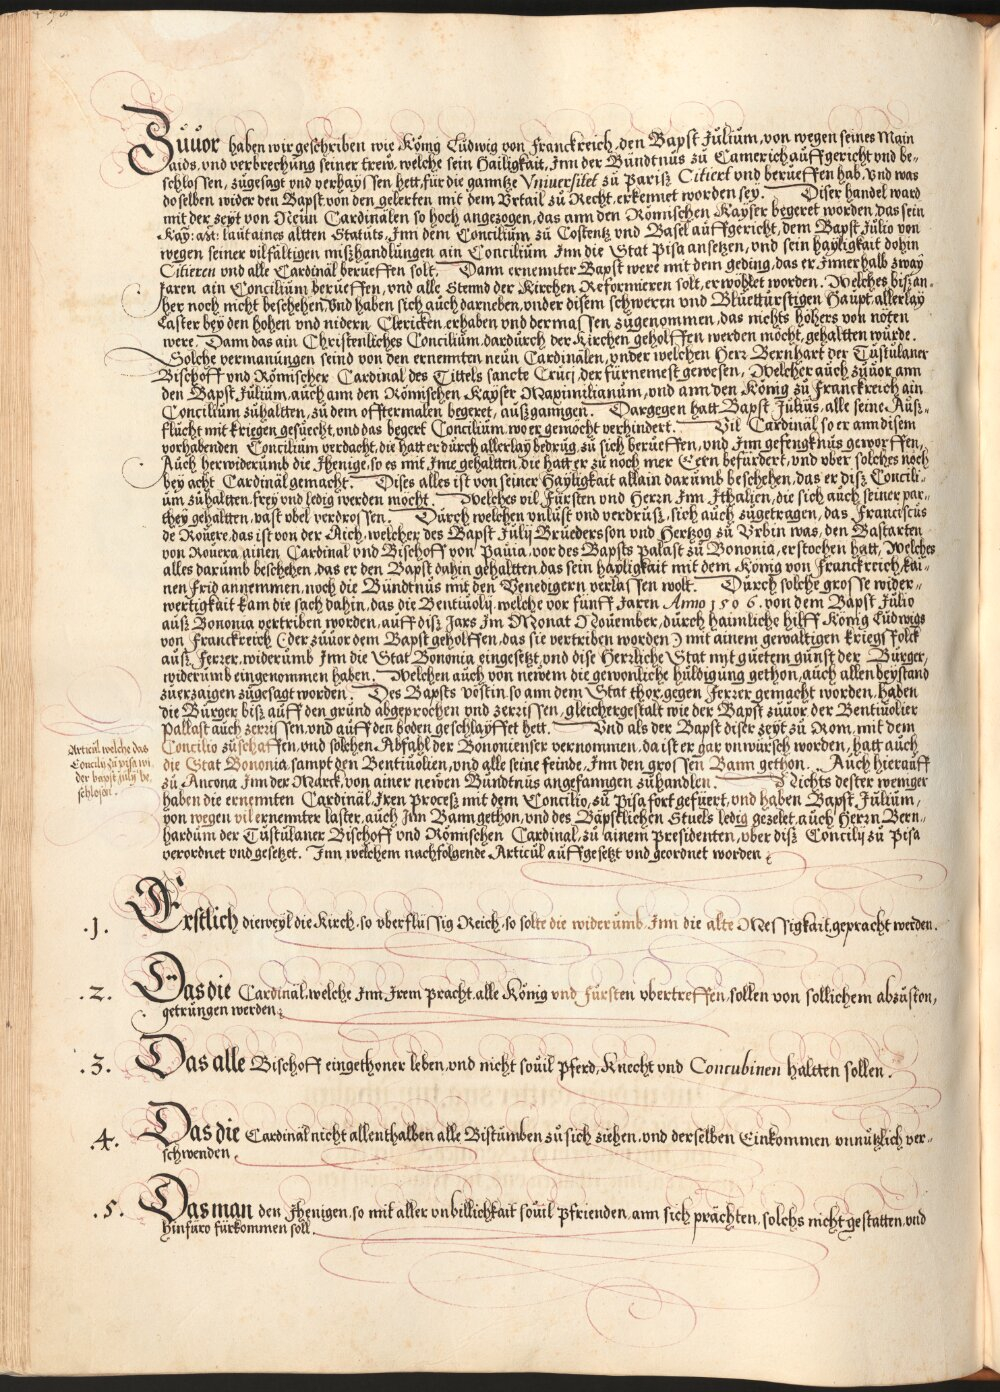 Zuuor haben wir geschriben wie König Ludwig von Franckreich, den Bapst Julium, von wegen seines Main
aids, vnd verbrechung seiner trew, welche sein Hailigkait, Inn der Bündtnus zu Camerich auffgericht vnd be-
schlossen, zugesagt vnd verhayssen hett, für die ganntze Vniuersitet zu Pariß Citiert vnd berueffen hab. Vnd was
doselben wider den Bapst von den gelerten mit dem Vrtail zu Recht erkennet worden sey. Diser handel ward
mit der zeyt von Neün Cardinälen so hoch angezogen, das ann den Römischen Kayser begeret worden, das sein
Kay: Mt: laut aines altten Statuts, Inn dem Concilium zu Costentz vnd Basel auffgericht, dem Bapst Julio von
wegen seiner vilfältigen mißhandlungen ain Concilium Inn die Stat Pisa ansetzen, vnd sein hayligkait dohin
Citieren vnd alle Cardinäl berueffen solt. Dann ernennter Bapst were mit dem geding, das er Innerhalb zway
Jaren ain Concilium berueffen, vnd alle Stennd der Kirchen Reformieren solt, erwöhlet worden. Welches biß an-
her noch nicht beschehen, Vnd haben sich auch darneben, vnder disem schweren vnd Bluettürstigen Haupt, allerlay
Laster bey den hohen vnd nidern Clericken, erhaben vnd dermassen zugenommen, das nichts höhers von nöten
were. Dann das ain Christenliches Concilium, dardurch der Kirchen geholffen werden möcht, gehaltten würde.
Solche vermanungen seind von den ernennten neün Cardinälen, vnder welchen Herr Bernhart der Tustulaner
Bischoff vnd Römischer Cardinal des Tittels sancte Cruci, der fürnemest gewesen, Welcher auch zuuor ann
den Bapst Julium, auch ann den Römischen Kayser Maximilianum, vnd ann den König zu Franckreich ain
Concilium zuhaltten, zu dem offtermalen begeret, außganngen. Dargegen hatt Bapst Julius, alle seine Auß-
flücht mit kriegen gesuecht, vnd das begert Concilium, wo er gemöcht verhindert. Vil Cardinäl, so er ann disem
vorhabenden Concilium verdacht, die hatt er durch allerlay bedrug, zu sich berueffen, vnd Inn gefengknus geworffen,
Auch herwiderumb die Jhenige, so es mit Ime gehaltten, die hatt er zu noch mer Eern befürdert, vnd vber solches noch
bey acht Cardinäl gemacht. Dises alles ist von seiner Hayligkait allain darumb beschehen, das er diß Concili-
um zuhaltten, frey vnd ledig werden möcht. Welches vil Fürsten vnd Herrn Inn Ithalien, die sich auch seiner par-
they gehaltten, vast vbel verdrossen. Durch welchen vnlust vnd verdruß, sich auch zugetragen, das Franciscus
de Rouere, das ist von der Aich, welcher des Bapst Julij Bruedersson vnd Hertzog zu Vrbin was, den Bastarten
von Rouera, ainen Cardinal vnd Bischoff von Pauia, vor des Bapsts Palast zu Bononia, erstochen hatt, Welches
alles darumb beschehen, das er den Bapst dahin gehaltten, das sein hayligkait mit dem König von Franckreich kai-
nen Frid annemmen, noch die Bündtnus mit den Venedigern verlassen wolt. Durch solche grosse wider-
wertigkait kam die sach dahin, das die Bentiuolij, welche vor fünff Jaren Anno 1506. von dem Bapst Julio
auß Bononia vertriben worden, auff diß Jars Im Monat Nouember, durch haimliche hilff König Ludwigs
von Franckreich (der zuuor dem Bapst geholffen, das sie vertriben worden) mit ainem gewaltigen kriegsfolck
auß Ferrer, widerumb Inn die Stat Bononia eingesetzt, vnd dise Herrliche Stat mit guetem gunst der Burger,
widerumb eingenommen haben. Welchen auch von newem die gewonliche huldigung gethon, auch allen beystand
zuerzaigen zugesagt worden. Des Bapsts vöstin, so ann dem Stat thor, gegen Ferrer gemacht worden, haben
die Burger biß auff den grund abgeprochen vnd zerrissen, gleichergestalt wie der Bapst zuuor der Bentiuolier
Pallast auch zerrissen, vnd auff den boden geschlayffet hett. Vnd als der Bapst diser zeyt zu Rom, mit dem
Concilio zuschaffen, vnd solchen Abfahl der Bononienser vernommen, da ist er gar vnwürsch worden, hatt auch
die Stat Bononia, sampt den Bentiuolien, vnd alle seine feinde, Inn den grossen Bann gethon. Auch hierauff
zu Ancona Inn der Marck, von ainer newen Bündtnus angefanngen zuhandlen. Nichts dester weniger
haben die ernennten Cardinäl, Iren Proceß mit dem Concilio, zu Pisa fort gefüert, vnd haben Bapst Julium,
von wegen vil ernennter laster, auch Inn Bann gethon, vnd des Bäpstlichen Stuels ledig gezelet, auch Herrn Bern-
hardum der Tustulaner Bischoff vnd Römischen Cardinal, zu ainem Presidenten, vber diß Concilij zu Pisa
verordnet vnd gesetzet. Inn welchem nachfolgende Articul auffgesetzt vnd geordnet worden.
Articul welche das
Concilij zu pisa wi-
der bapst julij be-
schlosen.
.1. Erstlich dieweyl die Kirch, so vberflüssig Reich, so solte die widerumb Inn die alte Messigkait, gepracht werden.
.2. Das die Cardinäl, welche Inn Irem Pracht, alle König vnd Fürsten vbertreffen, sollen von sollichem abzuston,
getrungen werden.
.3. Das alle Bischoff eingethoner leben, vnd nicht souil Pferd, Knecht vnd Concubinen haltten sollen.
.4. Das die Cardinäl nicht allenthalben alle Bistumben zu sich ziehen, vnd derselben Einkommen vnnutzlich ver-
schwenden.
.5. Das man den Jhenigen, so mit aller vnbillichkait souil Pfrienden, ann sich prächten, solchs nicht gestatten, vnd
hinfuro fürkommen soll.